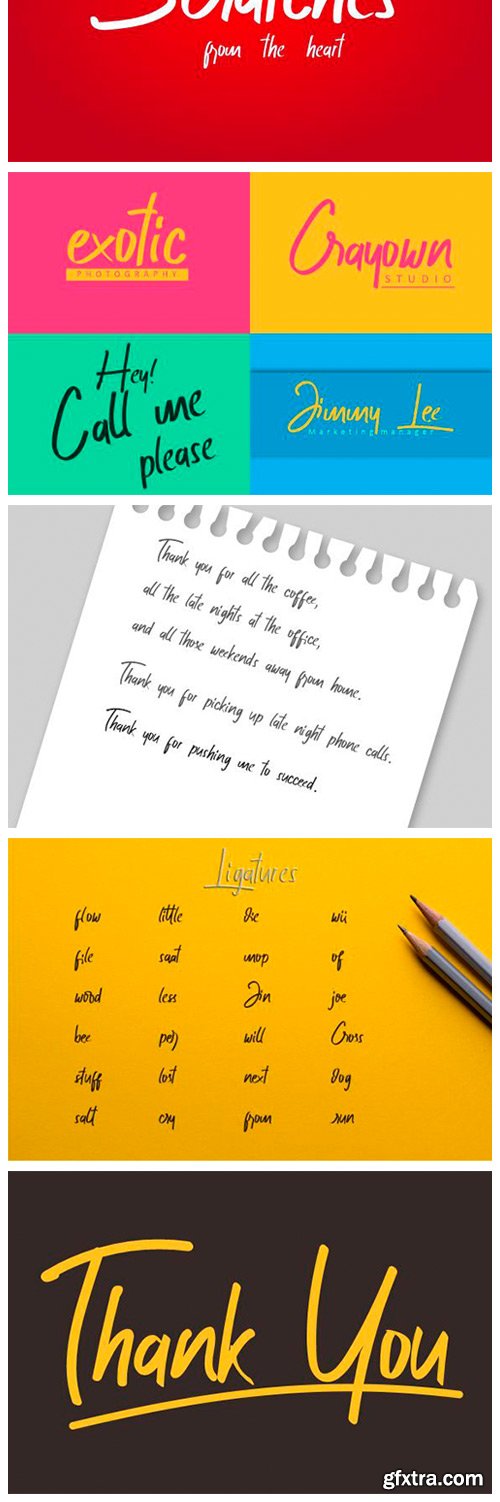 Scratches
from the heart
exotic
PHOTOGRAPHY
Crayown
STUDIO
Hey!
Call me
please
Jimmy Lee
Marketing manager
Thank you for all the coffee,
all the late nights at the office,
and all those weekends away from home.
Thank you for picking up late night phone calls.
Thank you for pushing me to succeed.
Ligatures
flow little wii
file saat mop of
wood less Jin joe
bee will Cross
stuff lost next
salt cry from run
Thank You
gfxtra.com